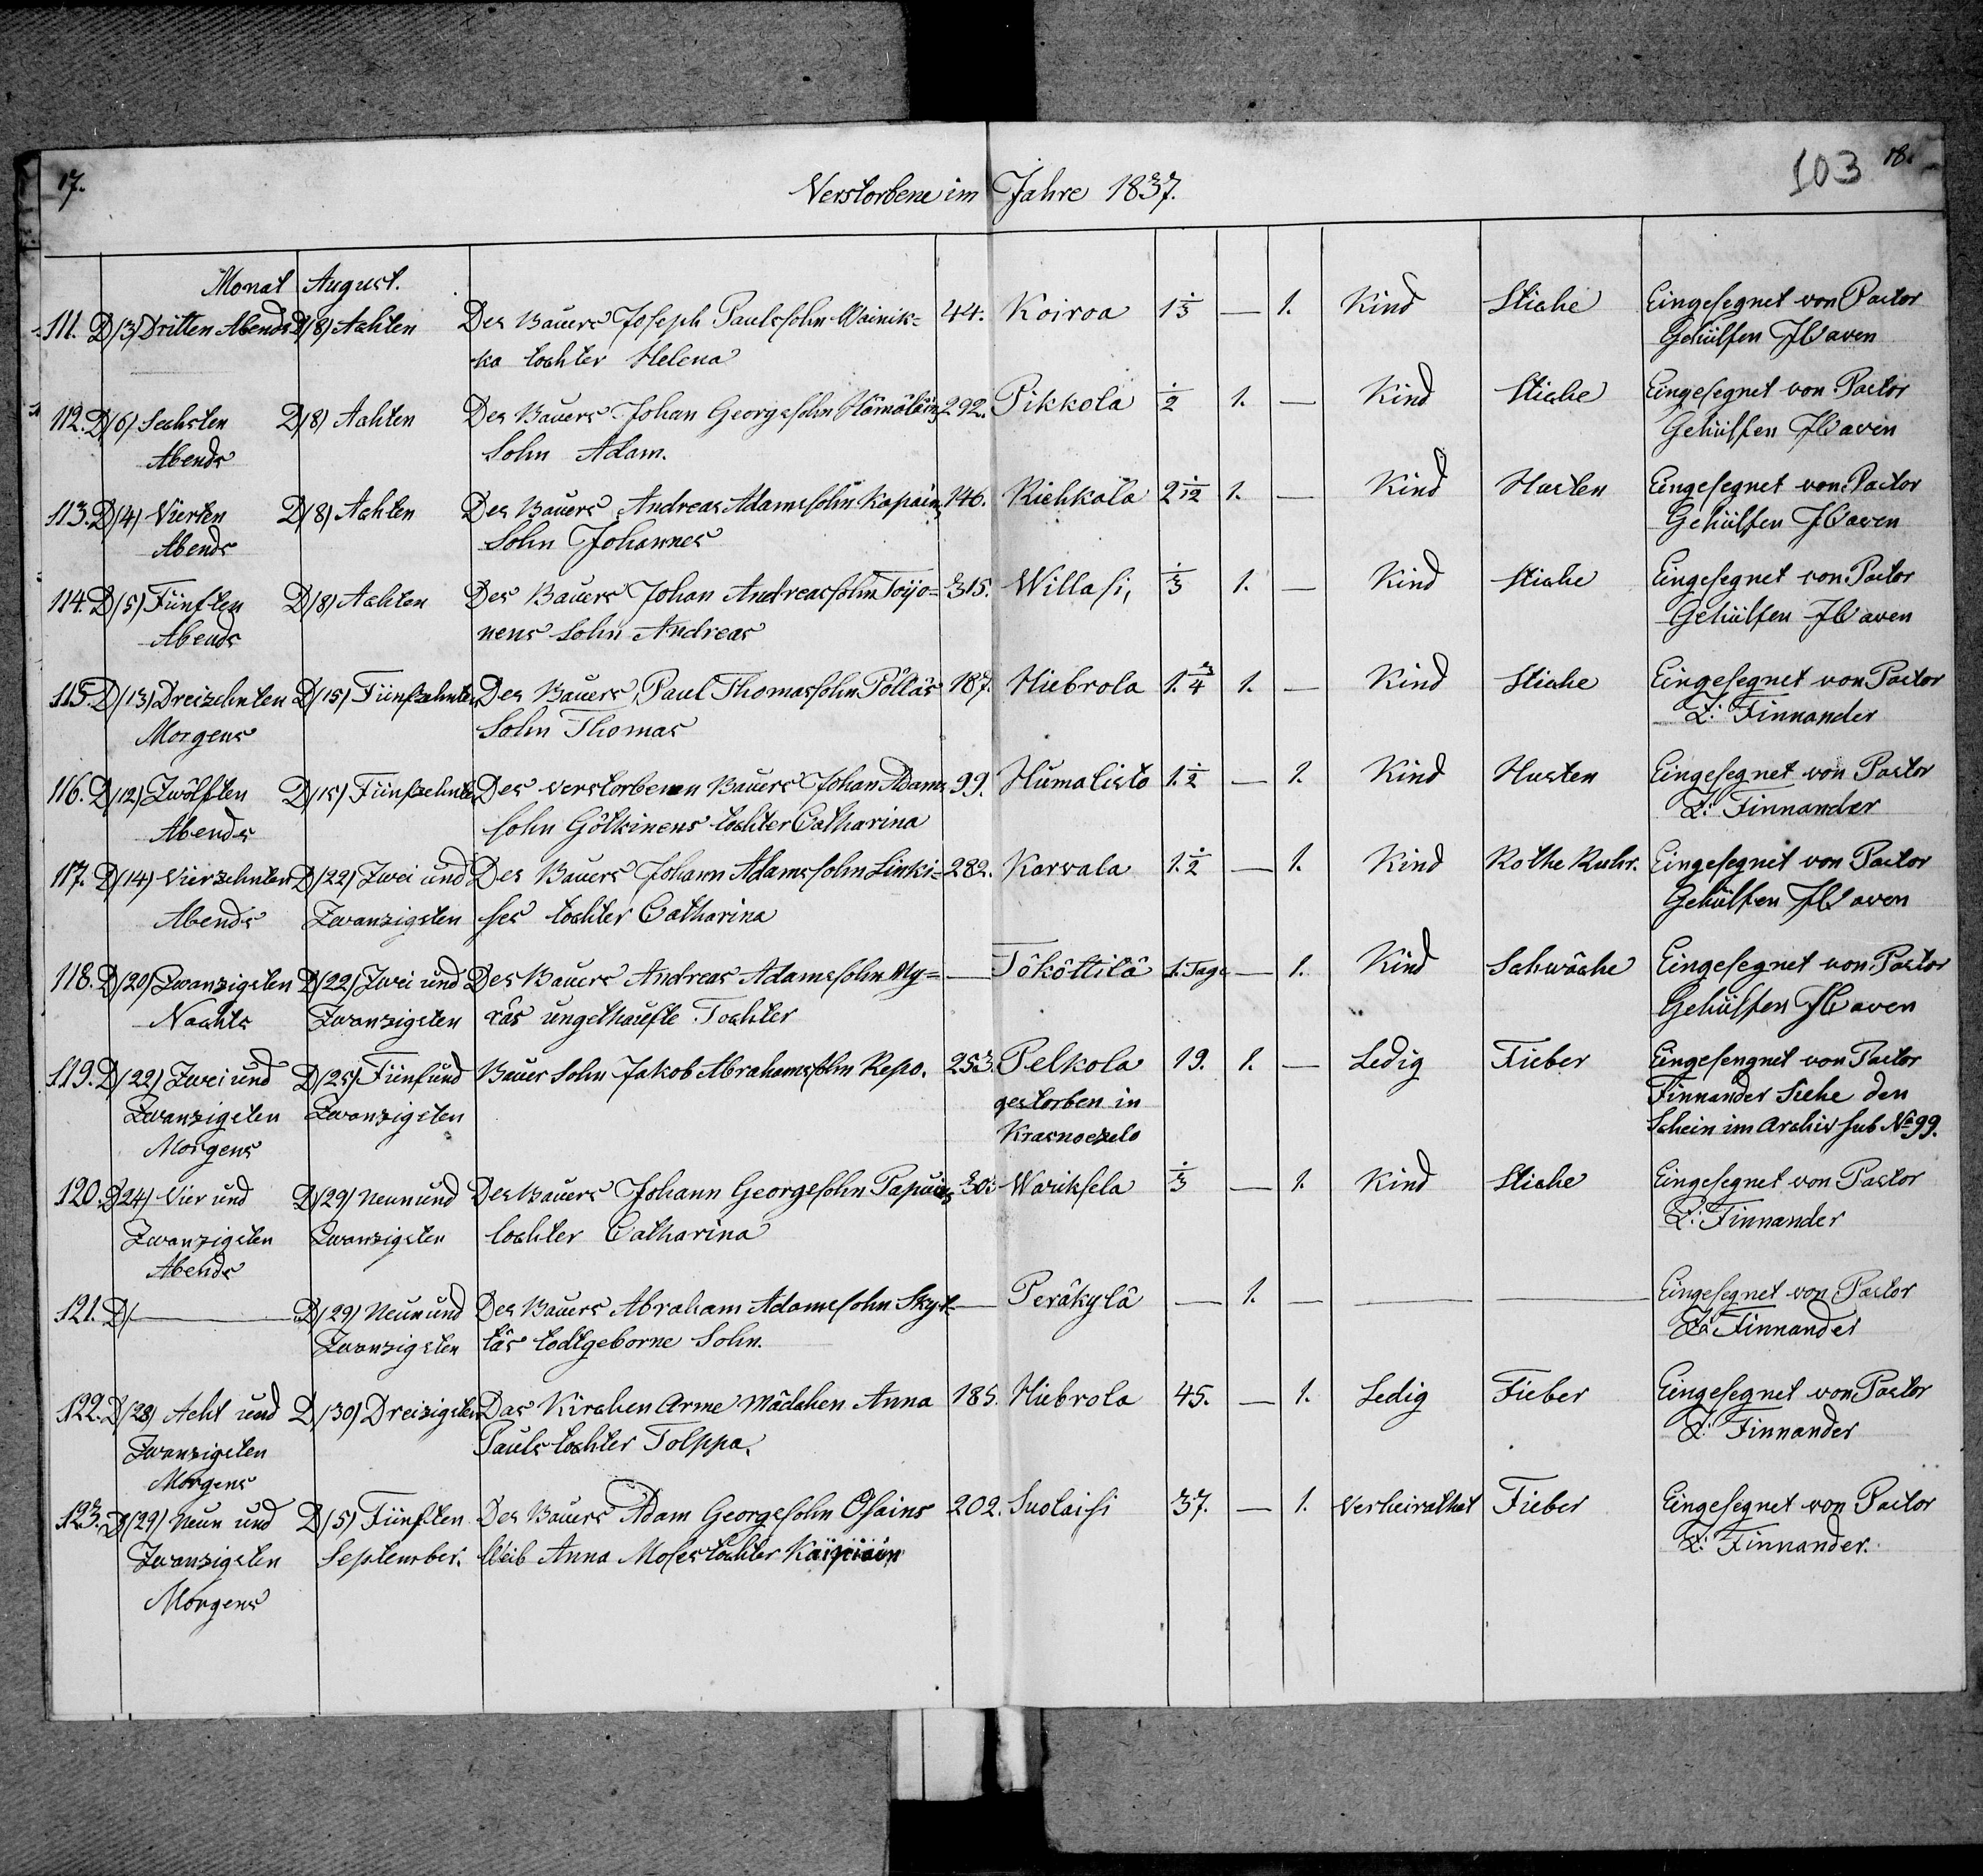 17.
Verstorbene im Jahre 1837.
103 18.
Monat August.
111. D/3/ Dritten Abends D/8/ Achten Des Bauers Joseph Paulssohn Wainik= 44. Koiroa 1 1/3 — 1. Kind Stiche Eingesegnet von Pastor
ka tochter Helena Gehülfen Haven
112. D/6/ Sechsten D/8/ Achten Des Bauers Johan Georgssohn Hämäläin 292. Pikkola 1/2 1. — Kind Stiche Eingesegnet von Pastor
Abends Sohn Adam. Gehülfen Haven
113. D/4/ Vierten D/8/ Achten Des Bauers Andreas Adamssohn Kapain 146. Riehkala 2 1/12 1. — Kind Husten Eingesegnet von Pastor
Abends Sohn Johannes Gehülfen Haven
114. D/5/ Fünften D/8/ Achten Des Bauers Johan Andreassohn Toijo= 315. Willasi, 1/3 1. — Kind Stiche Eingesegnet von Pastor
Abends nens Sohn Andreas Gehülfen Haven
115. D/13/ Dreizehnten D/15/ Fünfzehnten Des Bauers Paul Thomassohn Pölläs 187. Hiebrola 1. 3/4 1. — Kind Stiche Eingesegnet von Pastor
Morgens Sohn Thomas Z: Finnander
116. D/12/ Zwölften D/15/ Fünfzehnten Des verstorbenen Bauers Johan Adams 99. Humalisto 1. 1/2 — 1. Kind Husten Eingesegnet von Pastor
Abends sohn Gölkinens tochter Catharina Z: Finnander
117. D/14/ Vierzehnten D/22/ Zwei und Des Bauers Johann Adamssohn Sinki= 282. Karvala 1. 1/2 — 1. Kind Rothe Ruhr. Eingesegnet von Pastor
Abends Zwanzigsten ses tochter Catharina Gehülfen Haven
118. D/20/ Zwanzigsten D/22/ Zwei und Des Bauers Andreas Adamssohn My= — Tököttilä 1. Tage — 1. Kind Schwäche Eingesegnet von Pastor
Nachts Zwanzigsten räs ungethaufte Tochter Gehülfen Haven
119. D/22/ Zwei und D/25/ Fünf und Bauer Sohn Jakob Abrahamssohn Repo. 253. Pelkola 19. 1. — Ledig Fieber Eingesengnet von Pastor
Zwanzigsten Zwanzigsten gestorben in Finnander Siehe den
Morgens Krasnoeselo Schein im Archiv sub No 99.
120. D/24/ Vier und D/29/ Neun und Des Bauers Johann Georgesohn 30. Wariksela 1/3 — 1. Kind Stiche Eingesegnet von Pastor
Zwanzigsten Zwanzigsten tochter Catharina Z: Finnander
Abends
121. D/ — D/29/ Neun und Des Bauers Abraham Adamssohn Skyt= — Peräkylä — 1. — — — Eingesegnet von Pastor
Zwanzigsten täs todtgeborne Sohn. Z: Finnander
122. D/28/ Acht und D/30/ Dreizigsten Das Kirchen Arme Mädchen Anna 185. Hiebrola 45. — 1. Ledig Fieber Eingesegnet von Pastor
Zwanzigsten Pauls tochter Tolppa. Z: Finnander
Morgens
123. D/29/ Neun und D/5/ Fünften Des Bauers Adam Georgesohn Osains 202. Suolaisi 37. — 1. Verheirathet Fieber Eingesegnet von Pastor
Zwanzigsten September. Weib Anna Moses tochter Z: Finnander.
Morgens